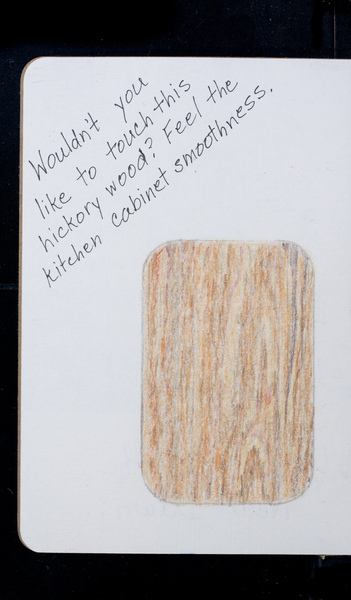 Wouldn't you
like to touch this
hickory wood? Feel the
kitchen cabinet smoothness.